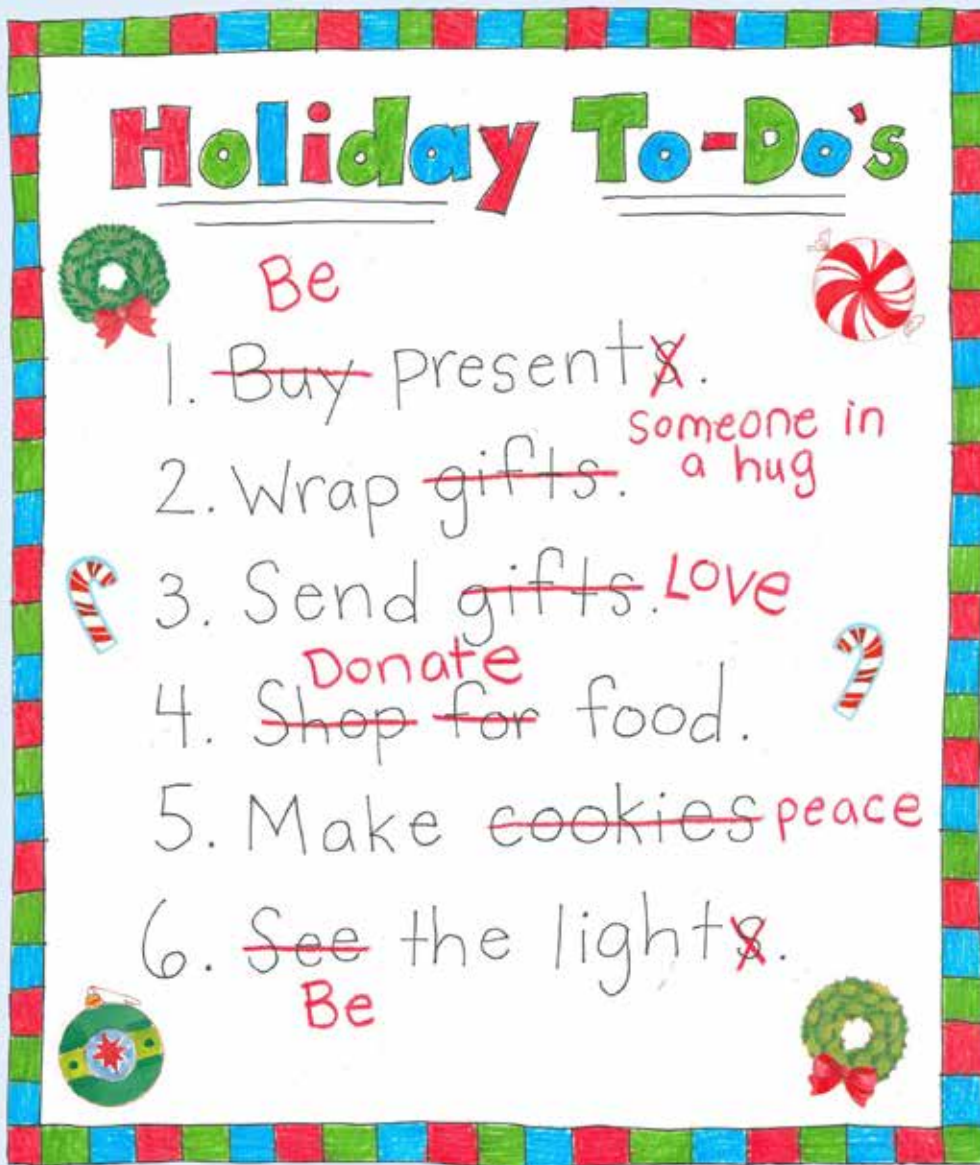 Holiday To-Do's
Be
1. Buy presents.
someone in
a hug
2. Wrap gifts.
3. Send gifts. Love
Donate
4. Shop for food.
5. Make cookies peace
6. See the lights.
Be